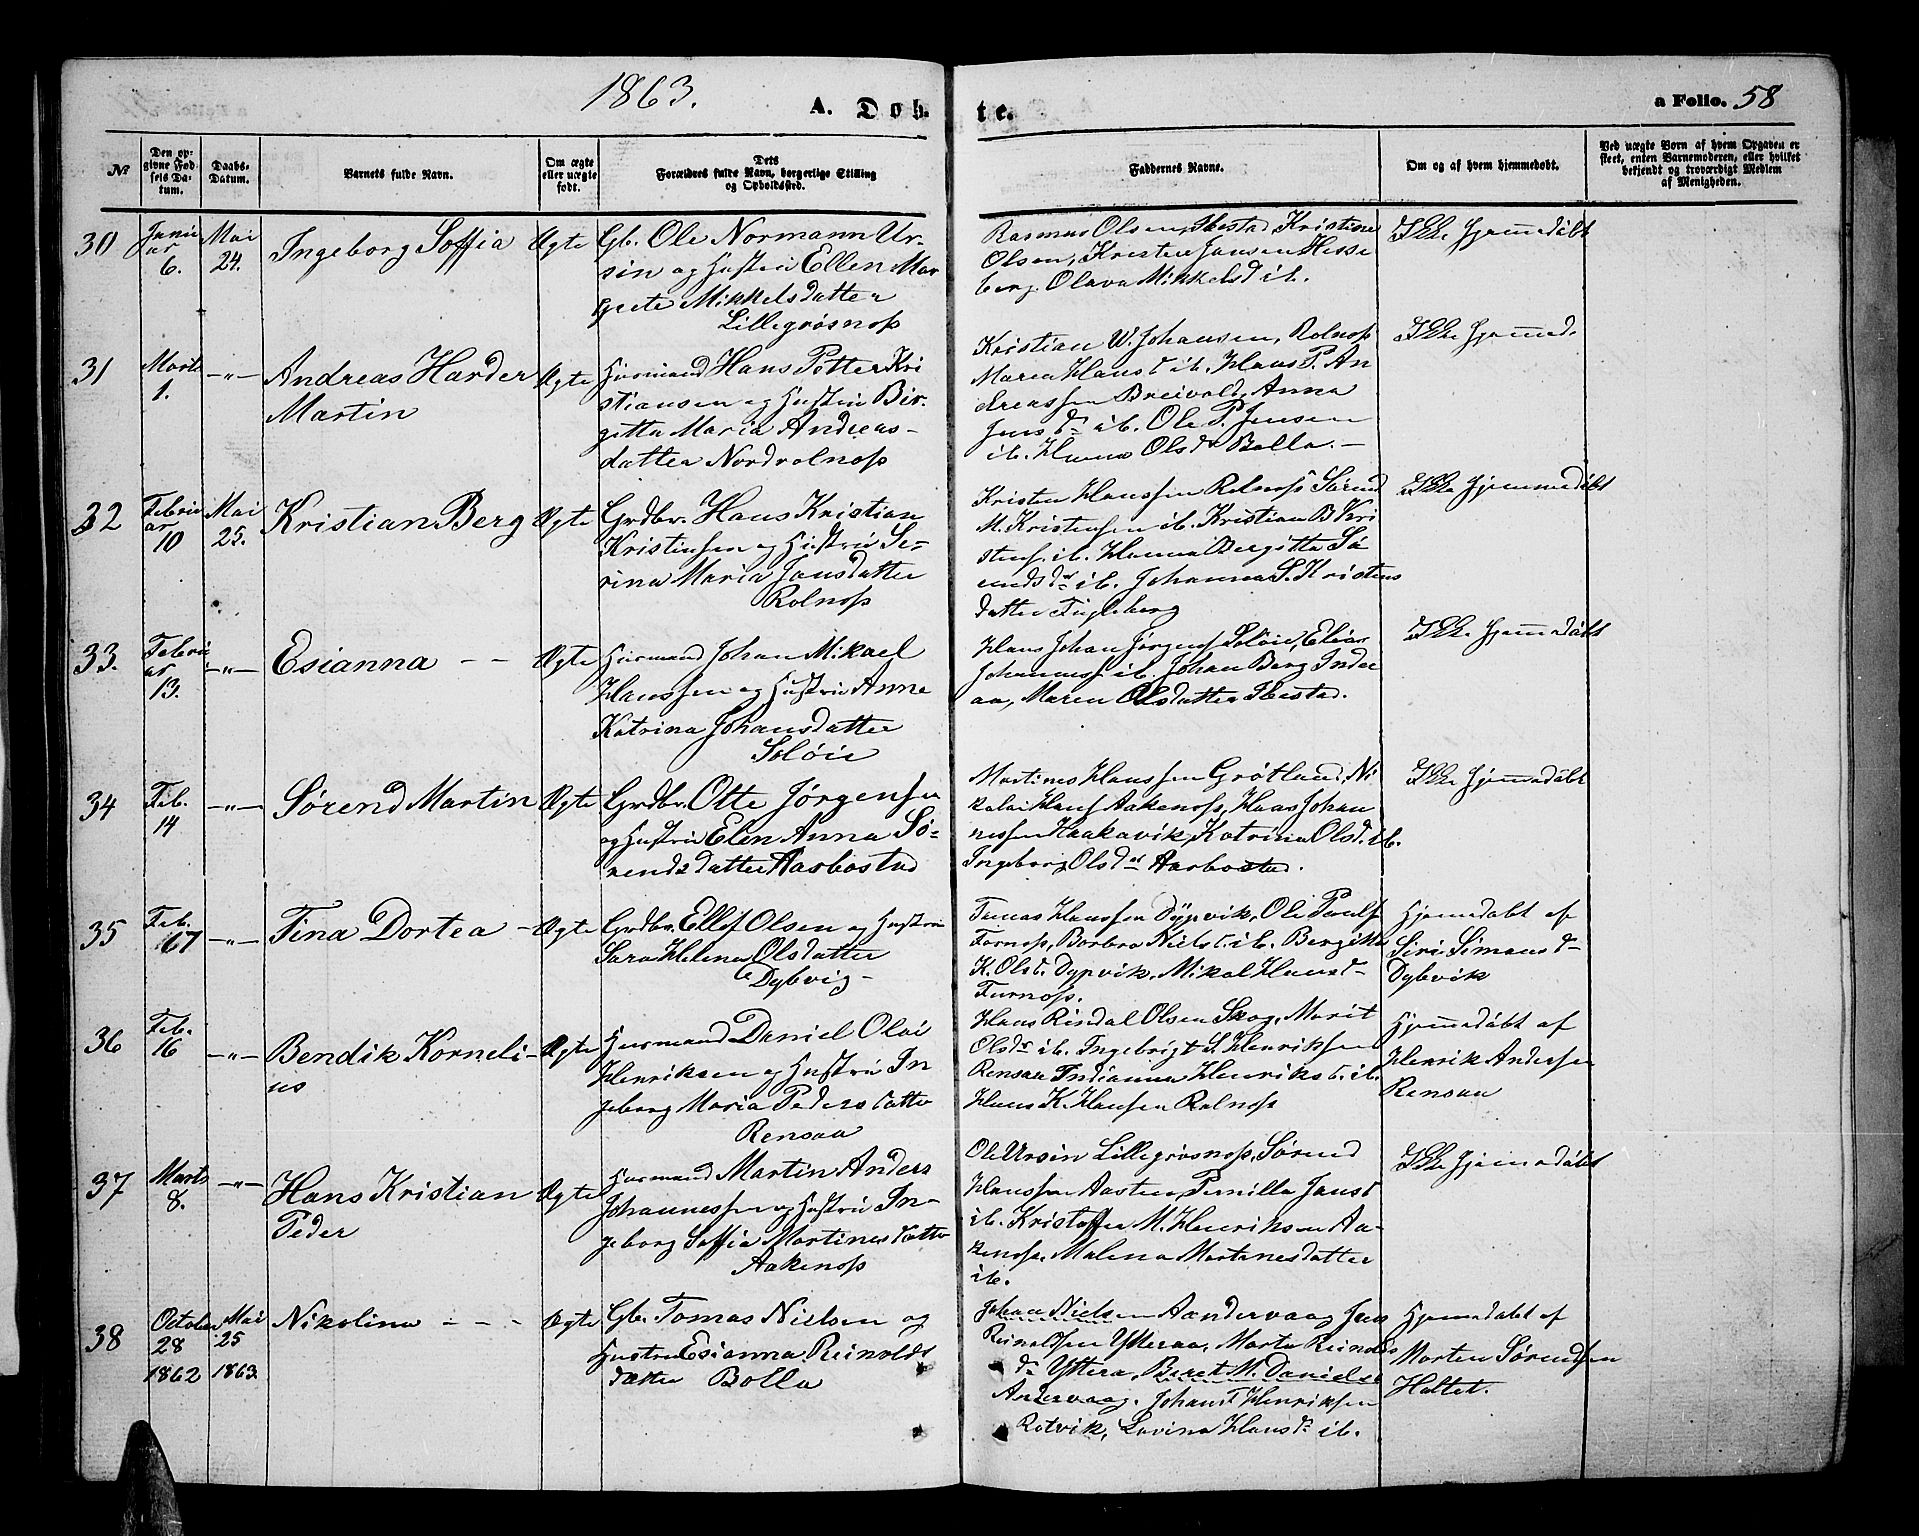 1863.
A. Døb.
te.
a Folio. 58
№
Den op-
givne Fød-
sels Da-
tum.
Daabs-
Datum.
Barnets fulde Navn.
Om ægte
eller uægte
født.
Dets
Forældres fulde Navn, borgerlige Stilling
og Opholdssted.
Faddernes Navne.
Om og af hvem hjemmedøbt.
Ved uægte Børn af hvem Opgaven er
skeet, enten Barnemoderen, eller hvilket
bekjendt og troværdigt Medlem
af Menigheden.
30
Janu
ar
6.
Mai
24.
Ingeborg Soffia
Ægte
Gb. Ole Normann Ur-
sin og Hustru Ellen Mar
grete Mikkelsdatter
Lillegrøsnæss
Rasmus Olsen, Ibestad, Kristine
Olsen, Kristen Jansen Hesse
berg. Olava Mikkelsd ib.
Ikke hjemmedøbt
31
Marts
1.
–"–
Andreas Harder
Martin
Ægte
Husmand Hans Petter Kri
stiansen og Hustru Bir-
gitta Maria Andreas-
datter Nordrolnæss
Kristian W. Johansen, Rolnæss
Maren Hansd ib. Hans P. An
dreassen Breivold, Anna
Jensdr ib. Ole P. Jensen
ib. Hanna Olsdr Bolla. –
Ikke hjemmed.
32
Februa
ar
10
Mai
25.
Kristian Berg
Ægte
Grdbr. Hans Kristian
Kristensen og Hustru Se-
rina Maria Jansdatter
Rolnæss
Kristen Hanssen Rolnæss Sørend
M. Kristensen ib. Kristian B Kri
stens. ib. Hanna Bergitta Sø
rendsdr ib. Johanna S. Kristens
datter Fugleberg
Ikke hjemmedøbt
33.
Februa
ar
13.
–"–
Esianna – –
Ægte
Husmand Johan Mikael
Hanssen og Hustru Anne
Katrina Johansdatter
Soløie
Hans Johan Jørgens. Soløie, Elias
Johannes. ib. Johan Berg Indre
aa, Maren Olsdatter Ibestad.
Ikke hjemmedøbt
34
Feb.
14
–"–
Sørend Martin
Ægte
Grdbr. Otte Jørgensen
og Hustru Elen Anna Sø-
rendsdatter Aarbostad
Martines Hanssen Grøtland, Ni
kolai Hans. Aakenæss, Hans Johan
nessen Kraakavik, Katrina Olsd. ib.
Ingeborg Olsdr Aarbostad.
Ikke hjemmedøbt
35
Feb.
–"–
Tina Dortea –
Ægte
Grdbr. Ellef Olsen og Hustru
Sara Helena Olsdatter
Dybvig –
Tomas Hanssen Dypvik, Ole Pauls.
Furnæss, Barbro Nielsd. ib. Bergitte
K. Olsd. Dypvik, Mikal Hansd –
Furnæss.
Hjemmedøbt af
Siri Simonsd –
Dybvik
36
Feb.
16
–"–
Bendik Korneli-
us
Ægte
Husmand Daniel Olai
Henriksen og Hustru In
geborg Maria Pedersdatter
Rensaa
Hans Rindal Olsen Skog, Marit
Olsdr ib. Ingebrigt S. Henriksen
Rensaa Indianna Henriksd. ib.
Hans K. Hansen Rolnæss
Hjemmedøbt af
Henrik Andersen
Rensaa
37
Marts
8.
–"–
Hans Kristian
Peder
Ægte
Husmand Martin Anders
Johannessen og Hustru In-
geborg Soffia Martinesdatter
Aakenæss
Ole Ursin Lillegrøsnæss, Sørend
Hanssen Aasten, Pernilla Jansd
ib. Kristoffer M. Henriksen Aa-
kenæss. Malena Martinesdatter
ib.
Ikke hjemmedøbt
38
October
28
1862
Mai
25
1863.
Nikolina – – –
Ægte
Gb. Tomas Nielsen og
Hustru Esianna Reinolds
datter Bolla
Johan Nielsen Aandervaag Jens
Reinoldsen Ytteraa, Marta Reinolds
dr Ytteraa, Beret M. Daniels.
Andervaag. Johans T. Henriksen
Rotvik, Lavina Hansdr ib.
Hjemmedøbt af
Morten Sørendsen
Hallet.